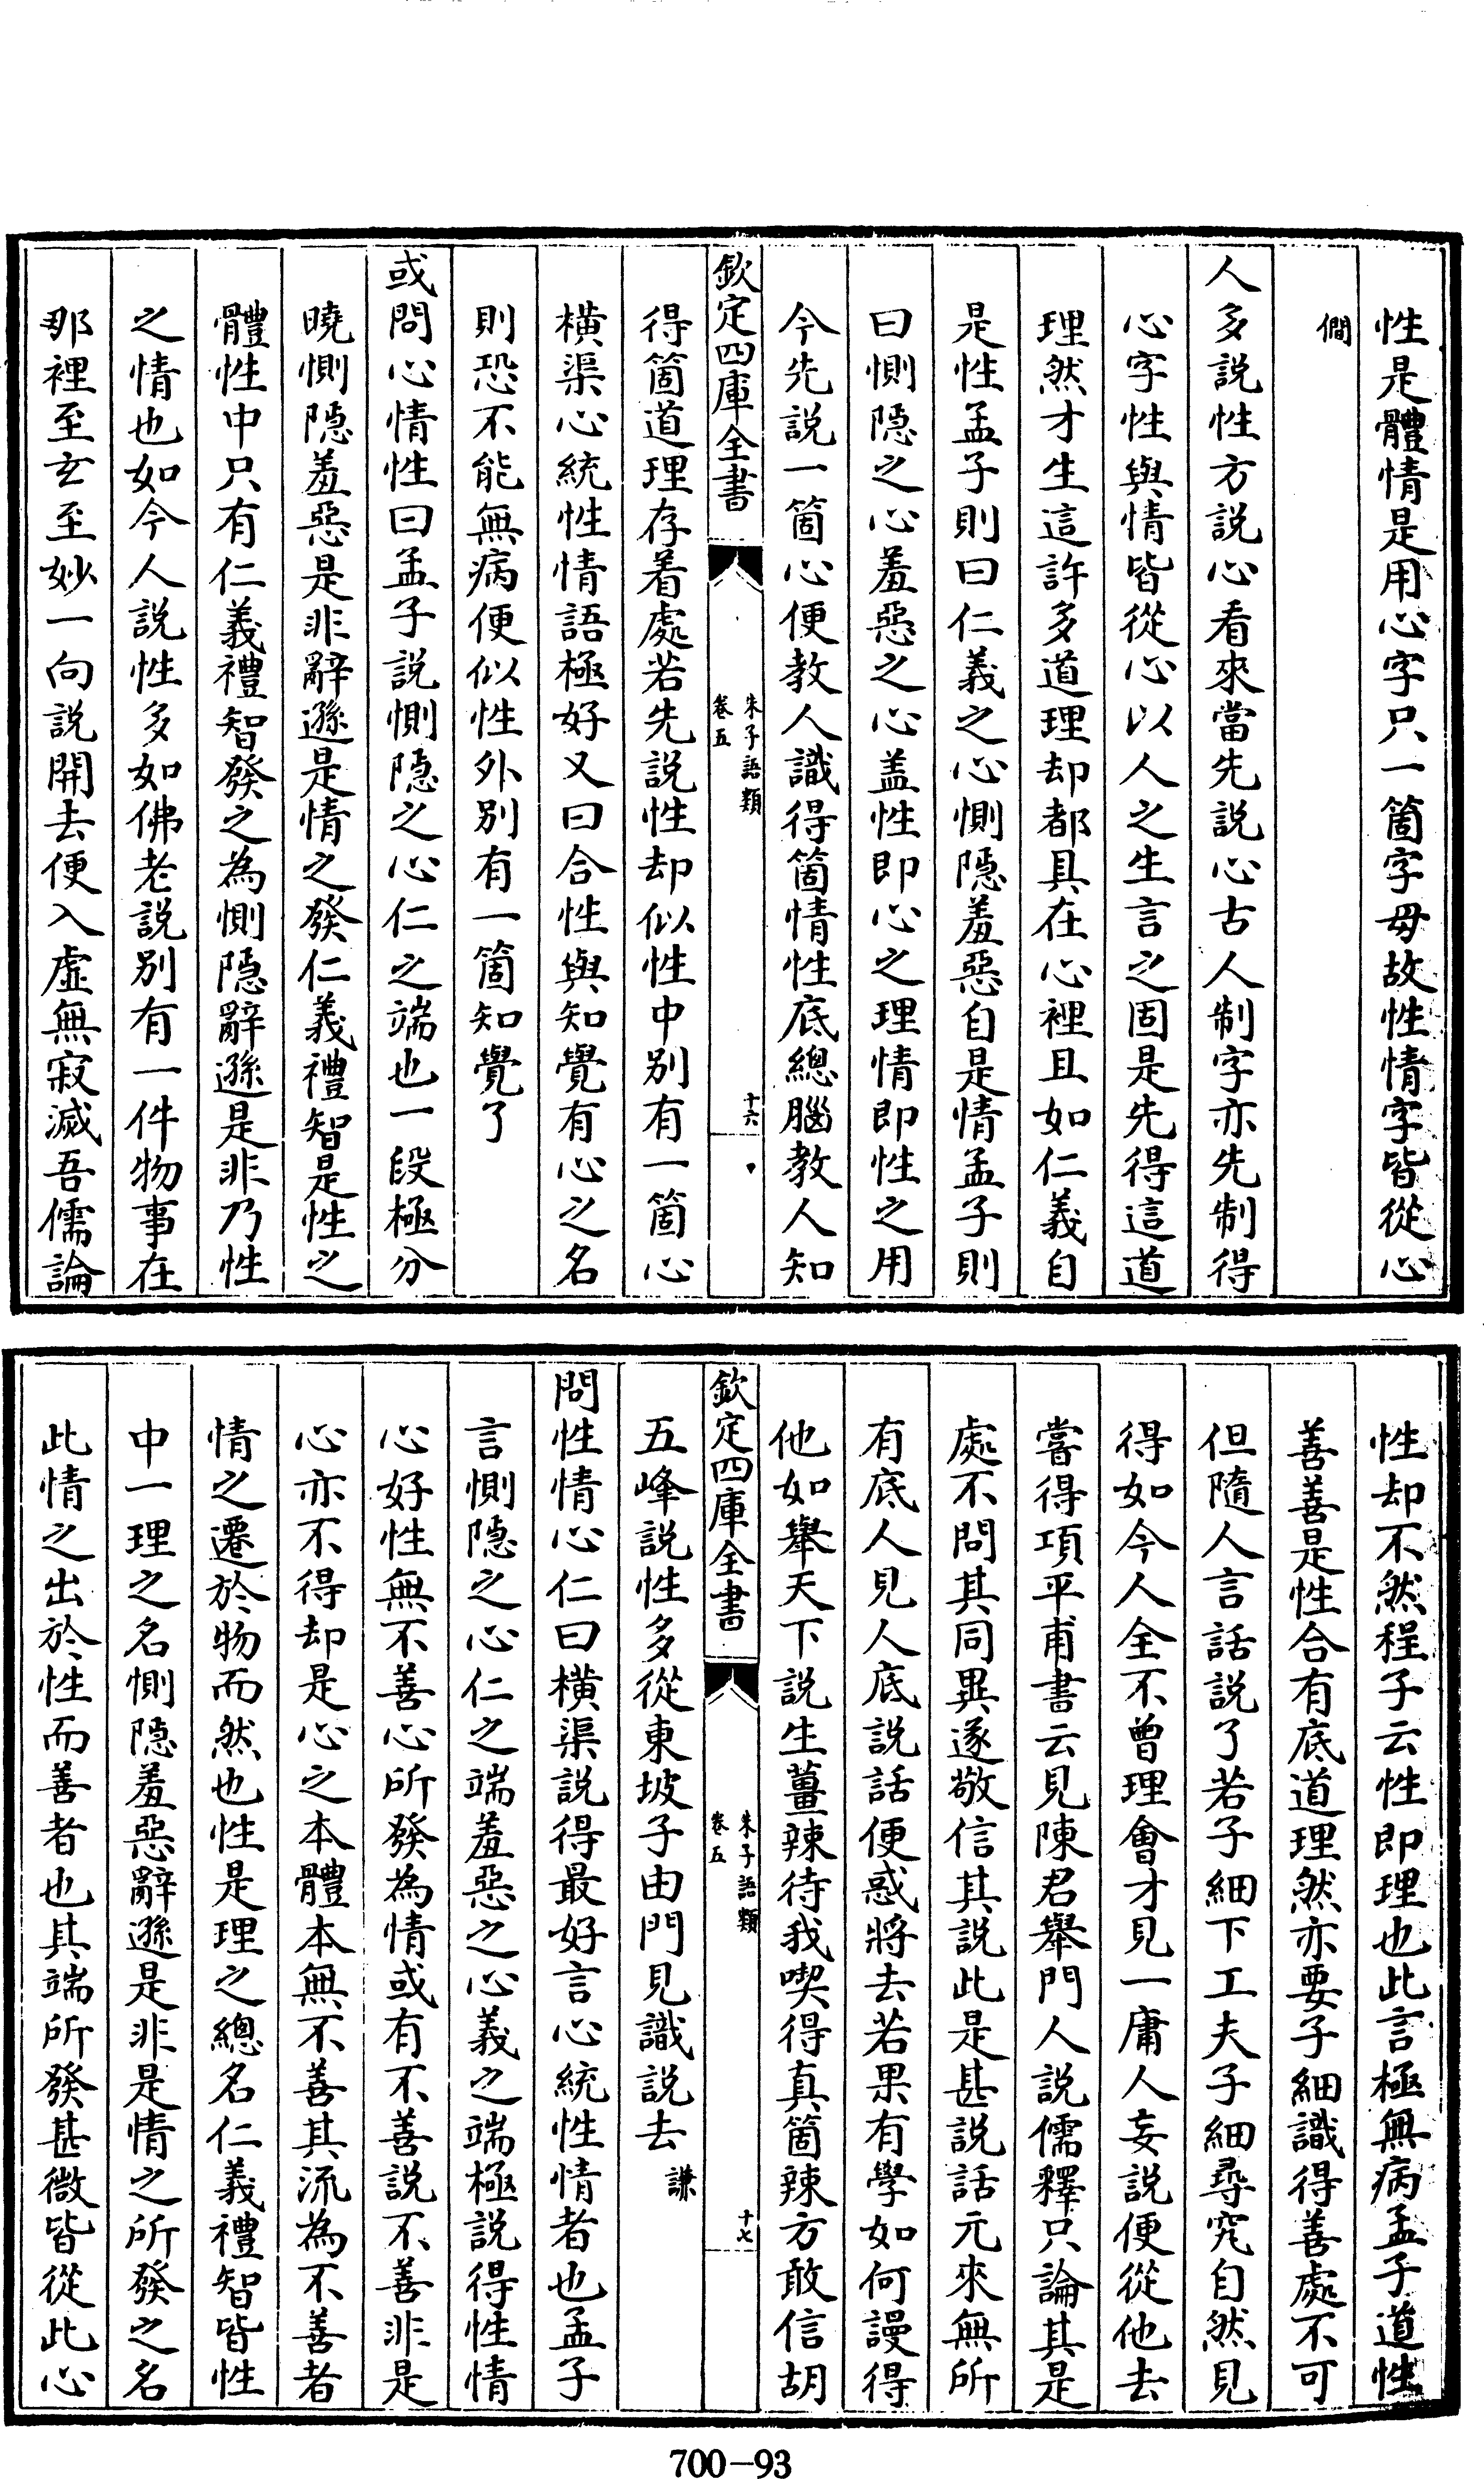 性是體情是用心字只一箇字母故性情字皆從心
僩
人多説性方説心看來當先説心古人制字亦先制得
心字性與情皆從心以人之生言之固是先得這道
理然才生這許多道理却都具在心裡且如仁義自
是性孟子則曰仁義之心惻隠羞惡自是情孟子則
曰惻隠之心羞惡之心盖性即心之理情即性之用
今先説一箇心便教人識得箇情性底總腦教人知
欽定四庫全書
朱子語類
卷五
十六
得箇道理存着處若先説性却似性中别有一箇心
横渠心統性情語極好又曰合性與知覺有心之名
則恐不能無病便似性外别有一箇知覺了
或問心情性曰孟子説惻隠之心仁之端也一段極分
曉惻隠羞惡是非辭遜是情之發仁義禮智是性之
體性中只有仁義禮智發之為惻隠辭遜是非乃性
之情也如今人説性多如佛老説别有一件物事在
那裡至玄至妙一向説開去便入虚無寂滅吾儒論
性却不然程子云性即理也此言極無病孟子道性
善善是性合有底道理然亦要子細識得善處不可
但隨人言話説了若子細下工夫子細尋究自然見
得如今人全不曾理會才見一庸人妄説便從他去
嘗得項平甫書云見陳君舉門人説儒釋只論其是
處不問其同異遂敬信其説此是甚説話元來無所
有底人見人底説話便惑將去若果有學如何謾得
他如舉天下説生薑辣待我喫得真箇辣方敢信胡
欽定四庫全書
朱子語類
卷五
十七
五峰説性多從東坡子由門見識説去 謙
問性情心仁曰横渠説得最好言心統性情者也孟子
言惻隠之心仁之端羞惡之心義之端極説得性情
心好性無不善心所發為情或有不善説不善非是
心亦不得却是心之本體本無不善其流為不善者
情之遷於物而然也性是理之總名仁義禮智皆性
中一理之名惻隠羞惡辭遜是非是情之所發之名
此情之出於性而善者也其端所發甚微皆從此心
700-93